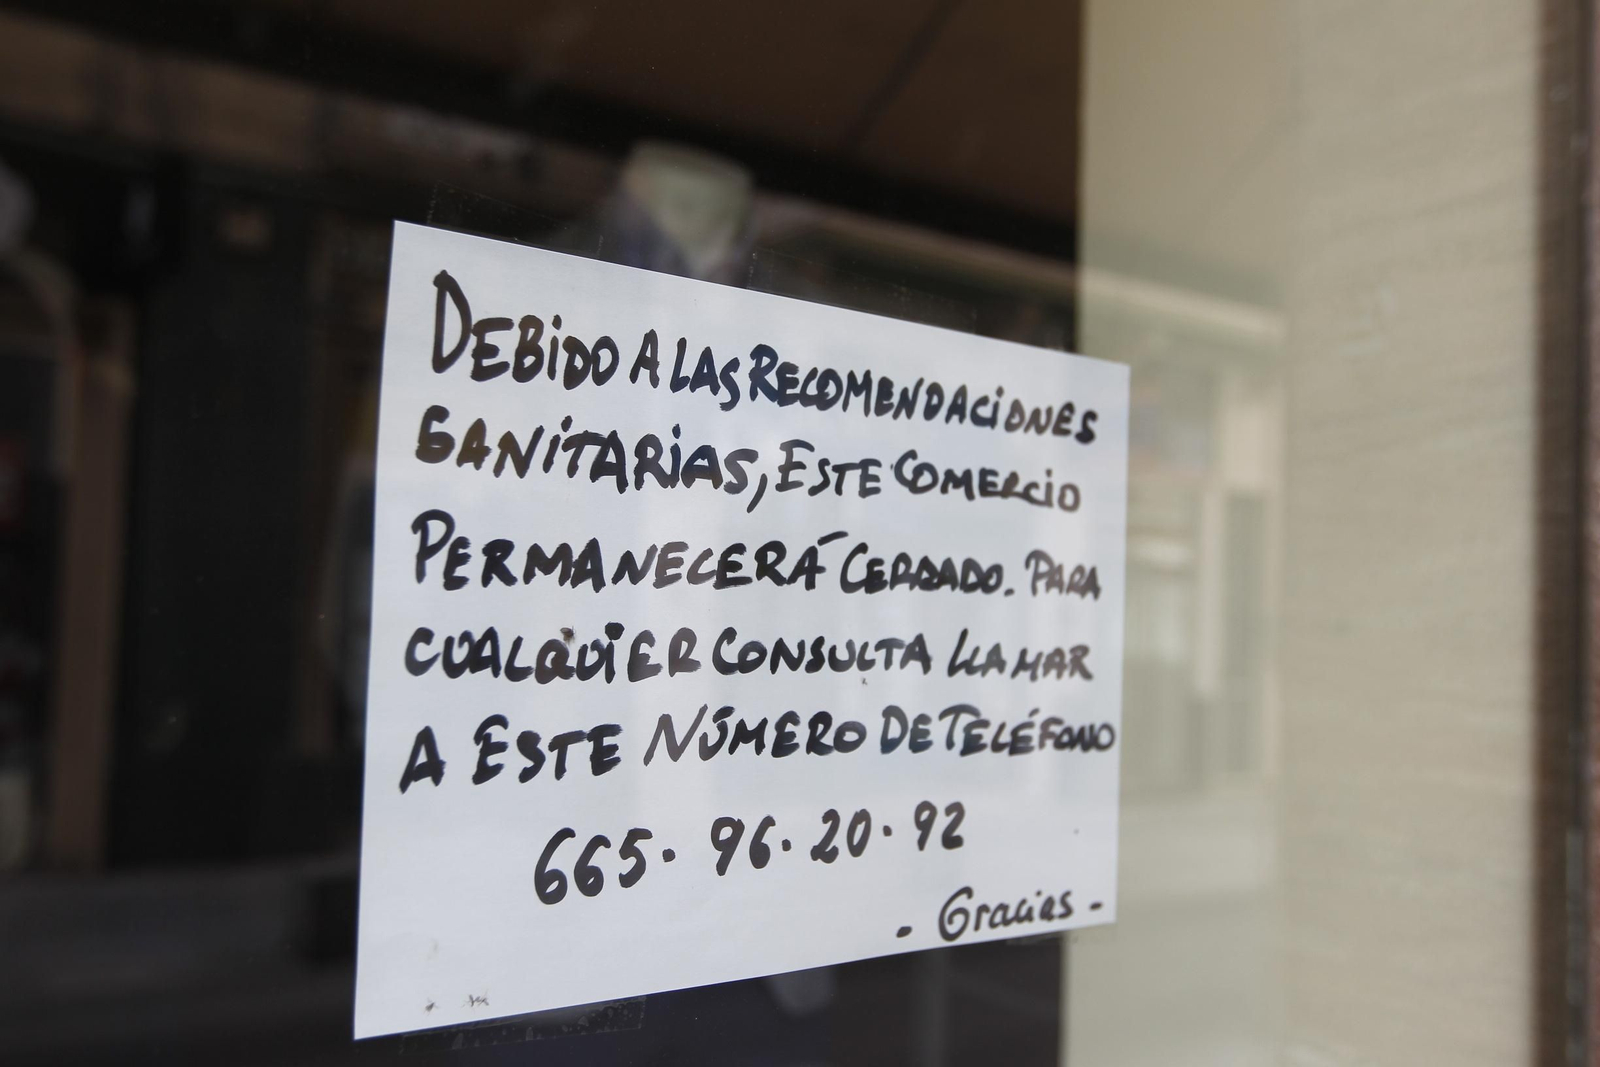 DEBIDO A LAS RECOMENDACIONES
SANITARIAS, ESTE COMERCIO
PERMANECERÁ CERRADO. PARA
CUALQUIER CONSULTA LLAMAR
A ESTE NÚMERO DE TELÉFONO
665. 96. 20. 92
- Gracias -